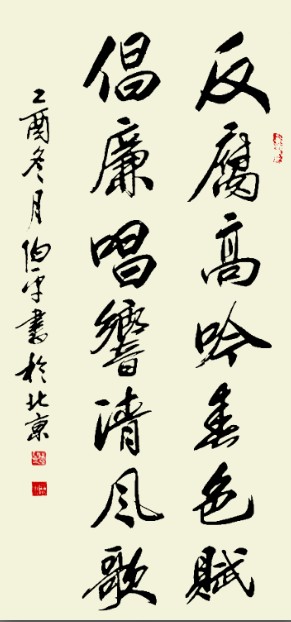 反腐高吟春色賦
倡廉唱響清风歌
乙酉冬月伯平書於北京